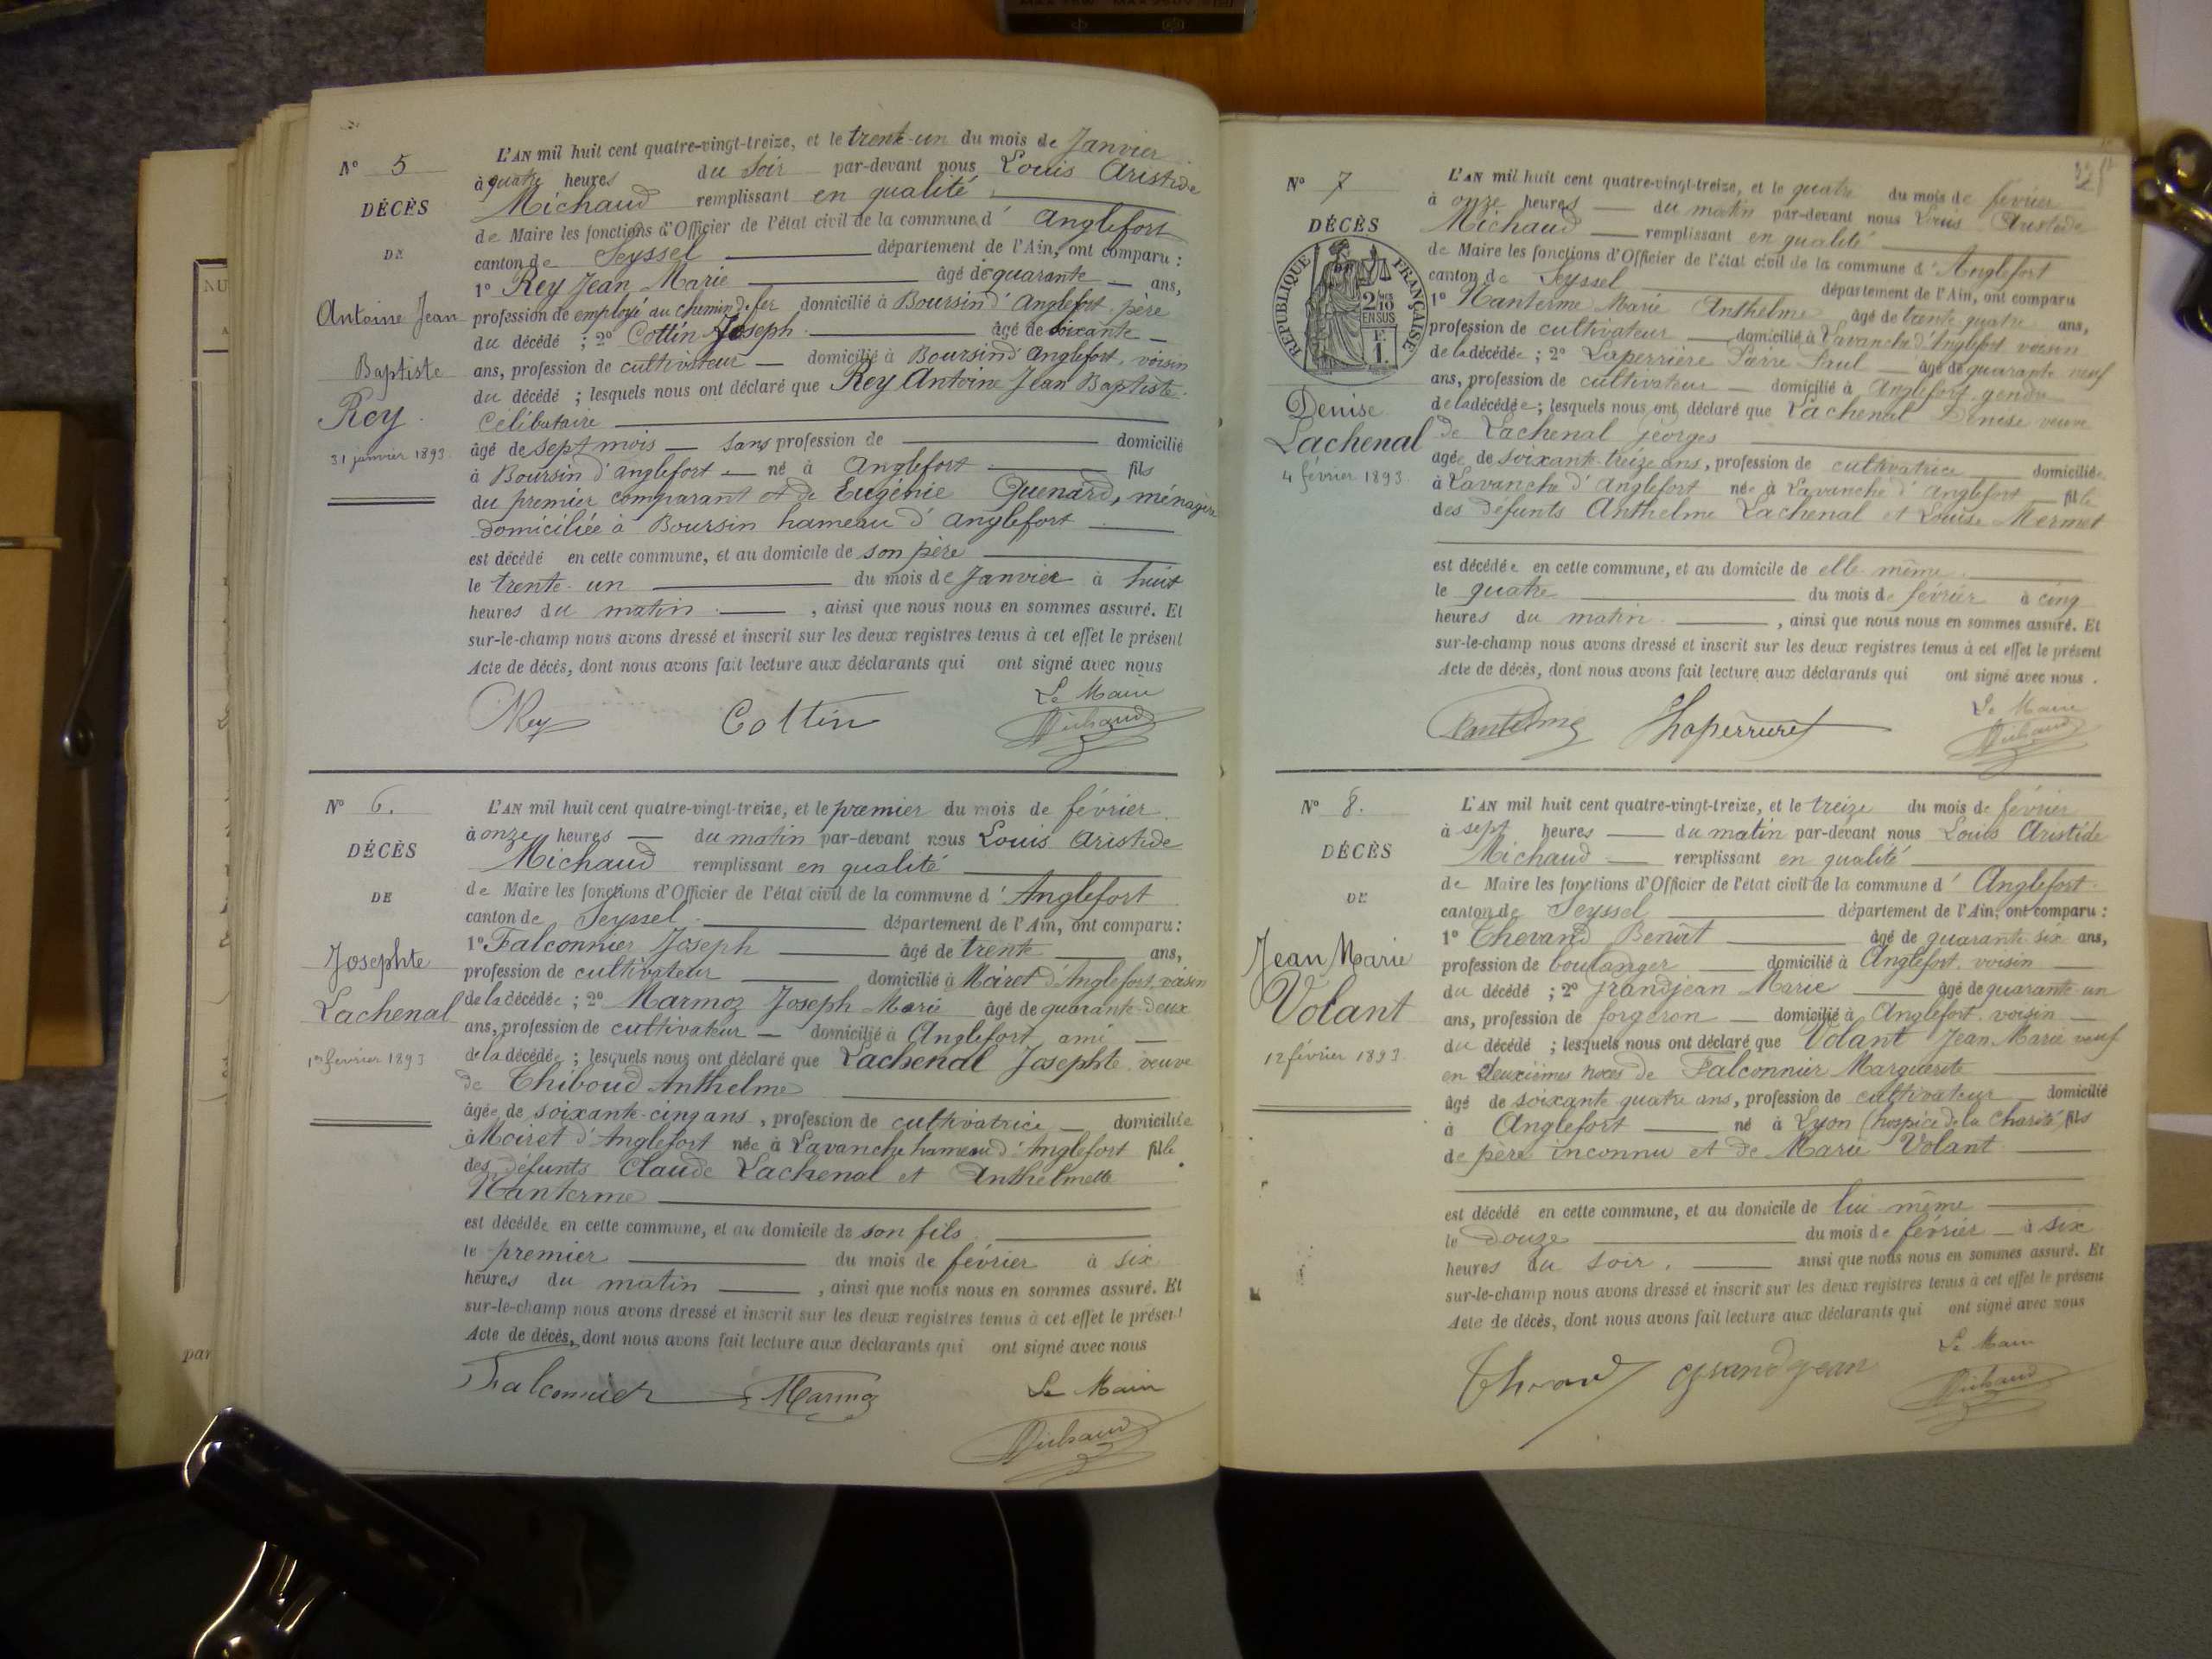 N° 5
DÉCÈS
DE
Antoine Jean
Baptiste
Rey.
31 janvier 1893.
L'AN mil huit cent quatre-vingt-treize, et le trente-un du mois de Janvier
à quatre heures du soir par-devant nous Louis Aristide
Michaud remplissant en qualité
de Maire les fonctions d'Officier de l'état civil de la commune d'Anglefort
canton de Seyssel département de l'Ain, ont comparu :
1° Rey Jean Marie âgé de quarante ans,
profession de employé au chemin de fer domicilié à Boursin d'Anglefort, père
du décédé ; 2° Cottin Joseph âgé de soixante
ans, profession de cultivateur domicilié à Boursin d'Anglefort, voisin
du décédé ; lesquels nous ont déclaré que Rey Antoine Jean Baptiste
célibataire
âgé de sept mois sans profession de domicilié
à Boursin d'anglefort né à Anglefort fils
du premier comparant et de Eugénie Quenard, ménagère
domiciliée à Boursin hameau d'anglefort
est décédé en cette commune, et au domicile de son père
le trente-un du mois de Janvier à huit
heures du matin, ainsi que nous nous en sommes assuré. Et
sur-le-champ nous avons dressé et inscrit sur les deux registres tenus à cet effet le présent
Acte de décès, dont nous avons fait lecture aux déclarants qui ont signé avec nous
Le Maire
Rey Cottin Michaud
N° 6.
DÉCÈS
DE
Josephte
Lachenal
1er février 1893
L'AN mil huit cent quatre-vingt-treize, et le premier du mois de février
à onze heures du matin par-devant nous Louis Aristide
Michaud remplissant en qualité
de Maire les fonctions d'Officier de l'état civil de la commune d'Anglefort
canton de Seyssel département de l'Ain, ont comparu :
1° Falconnier Joseph âgé de trente ans,
profession de cultivateur domicilié à Moiret d'Anglefort, voisin
de la décédée ; 2° Marmoz Joseph Marie âgé de quarante-deux
ans, profession de cultivateur domicilié à Anglefort, ami
de la décédée ; lesquels nous ont déclaré que Lachenal Josephte, veuve
de Thiboud Anthelme
âgée de soixante-cinq ans, profession de cultivatrice domiciliée
à Moiret d'Anglefort née à Lavanche hameau d'Anglefort fille
des défunts Claude Lachenal et Anthelmette
Nanterme
est décédée en cette commune, et au domicile de son fils
le premier du mois de février à six
heures du matin, ainsi que nous nous en sommes assuré. Et
sur-le-champ nous avons dressé et inscrit sur les deux registres tenus à cet effet le présent
Acte de décès, dont nous avons fait lecture aux déclarants qui ont signé avec nous
Falconnier Marmoz Le Maire
Michaud
N° 7
DÉCÈS
DE
RÉPUBLIQUE FRANÇAISE
Denise
Lachenal
4 février 1893
L'AN mil huit cent quatre-vingt-treize, et le quatre du mois de février
à onze heures du matin par-devant nous Louis Aristide
Michaud remplissant en qualité
de Maire les fonctions d'Officier de l'état civil de la commune d'Anglefort
canton de Seyssel département de l'Ain, ont comparu
1° Nanterme Marie Anthelme âgé de trente quatre ans,
profession de cultivateur domicilié à Lavanche d'Anglefort voisin
de la décédée ; 2° Laperrière Pierre Paul âgé de quarante neuf
ans, profession de cultivateur domicilié à Anglefort, gendre
de la décédée ; lesquels nous ont déclaré que Lachenal Denise veuve
de Lachenal georges
âgée de soixante-treize ans, profession de cultivatrice domiciliée
à Lavanche d'Anglefort née à Lavanche d'Anglefort fille
des défunts Anthelme Lachenal et Louise Mermet
est décédée en cette commune, et au domicile de elle même
le quatre du mois de février à cinq
heures du matin, ainsi que nous nous en sommes assuré. Et
sur-le-champ nous avons dressé et inscrit sur les deux registres tenus à cet effet le présent
Acte de décès, dont nous avons fait lecture aux déclarants qui ont signé avec nous.
Le Maire
Michaud
N° 8.
DÉCÈS
DE
Jean Marie
Volant
12 février 1893.
L'AN mil huit cent quatre-vingt-treize, et le treize du mois de février
à sept heures du matin par-devant nous Louis Aristide
Michaud remplissant en qualité
de Maire les fonctions d'Officier de l'état civil de la commune d'Anglefort
canton de Seyssel département de l'Ain, ont comparu :
1° Thevand Benoit âgé de quarante six ans,
profession de boulanger domicilié à Anglefort, voisin
du décédé ; 2° grandjean Marie âgé de quarante-un
ans, profession de forgeron domicilié à Anglefort, voisin
du décédé ; lesquels nous ont déclaré que Volant Jean Marie veuf
en deuxièmes noces de Falconnier Marguerite
âgé de soixante quatre ans, profession de cultivateur domicilié
à Anglefort né à Lyon (hospice de la Charité) fils
de père inconnu et de Marie Volant
est décédé en cette commune, et au domicile de lui même
le douze du mois de février à six
heures du soir, ainsi que nous nous en sommes assuré. Et
sur-le-champ nous avons dressé et inscrit sur les deux registres tenus à cet effet le présent
Acte de décès, dont nous avons fait lecture aux déclarants qui ont signé avec nous
Le Maire
grandjean Michaud